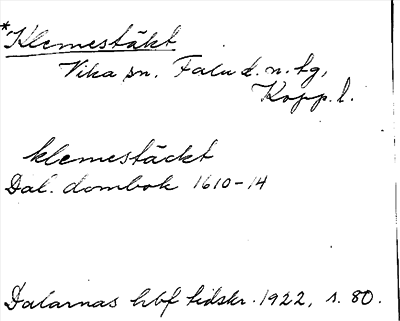 *Klemestäkt
Vika sn. Falu d. n. tg,
Kopp. l.
klemestäckt
Dal. dombok 1610-14
Dalarnas hbf tidskr. 1922, s. 80.